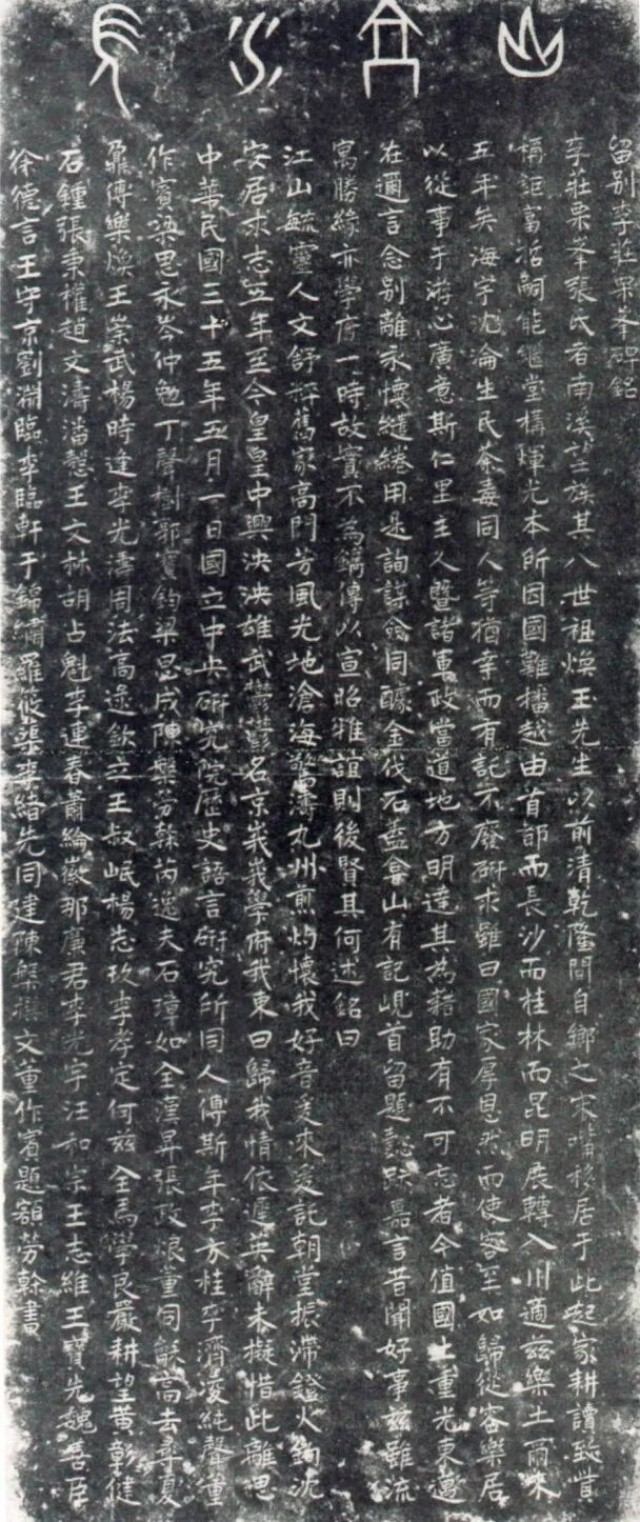 山高水長
留別李莊栗峯碑銘
李莊栗峯張氏者南溪望族其八世祖煥玉先生以前清乾隆間自鄉之宋嘴移居于此起家耕讀致貲
稱詎富拓嗣能繼堂構輝光本所因國難播越由首都而長沙而桂林而昆明展轉入川適兹樂土爾來
五年矣海宇沈淪生民荼毒同人等猶幸而有託不廢研求雖曰國家厚恩然而使客至如歸從容樂居
以從事于游心廣意斯仁里主人暨諸軍政當道地方明達其為藉助有不可忘者今值國土重光東邁
在邇言念別離永懷繾綣用是詢謀僉同醵金伐石盍龕山有記峴首留題懿跡嘉言昔聞好事兹雖流
寓勝緣亦學府一時故實不為鐫傳以宣昭雅誼則後賢其何述銘曰
江山毓靈人文舒粹舊家高門芳風光地滄海驚濤九州煎灼懷我好音爰來爰託朝堂振滯鐙火鉤沈
安居求志五年至今皇皇中興泱泱雄武鬱鬱名京峩峩學府我東曰歸我情依遲英辭未擬惜此離思
中華民國三十五年五月一日國立中央研究院歷史語言研究所同人傅斯年李方桂李濟凌純聲董
作賓梁思永岑仲勉丁聲樹郭寶鈞梁思成陳槃勞榦芮逸夫石璋如全漢昇張政烺董同龢高去尋夏
鼐傅樂煥王崇武楊時逢李光濤周法高逯欽立王叔岷楊志玖李孝定何兹全馬學良嚴耕望黃彰健
石鍾張秉權趙文濤潘愨王文林胡占魁李連春蕭綸徽那廉君李光宇汪和宗王志維王寶先魏善臣
徐德言王守京劉淵臨李臨軒于錦繡羅筱蕖李緒先同建陳槃撰文董作賓題額勞榦書